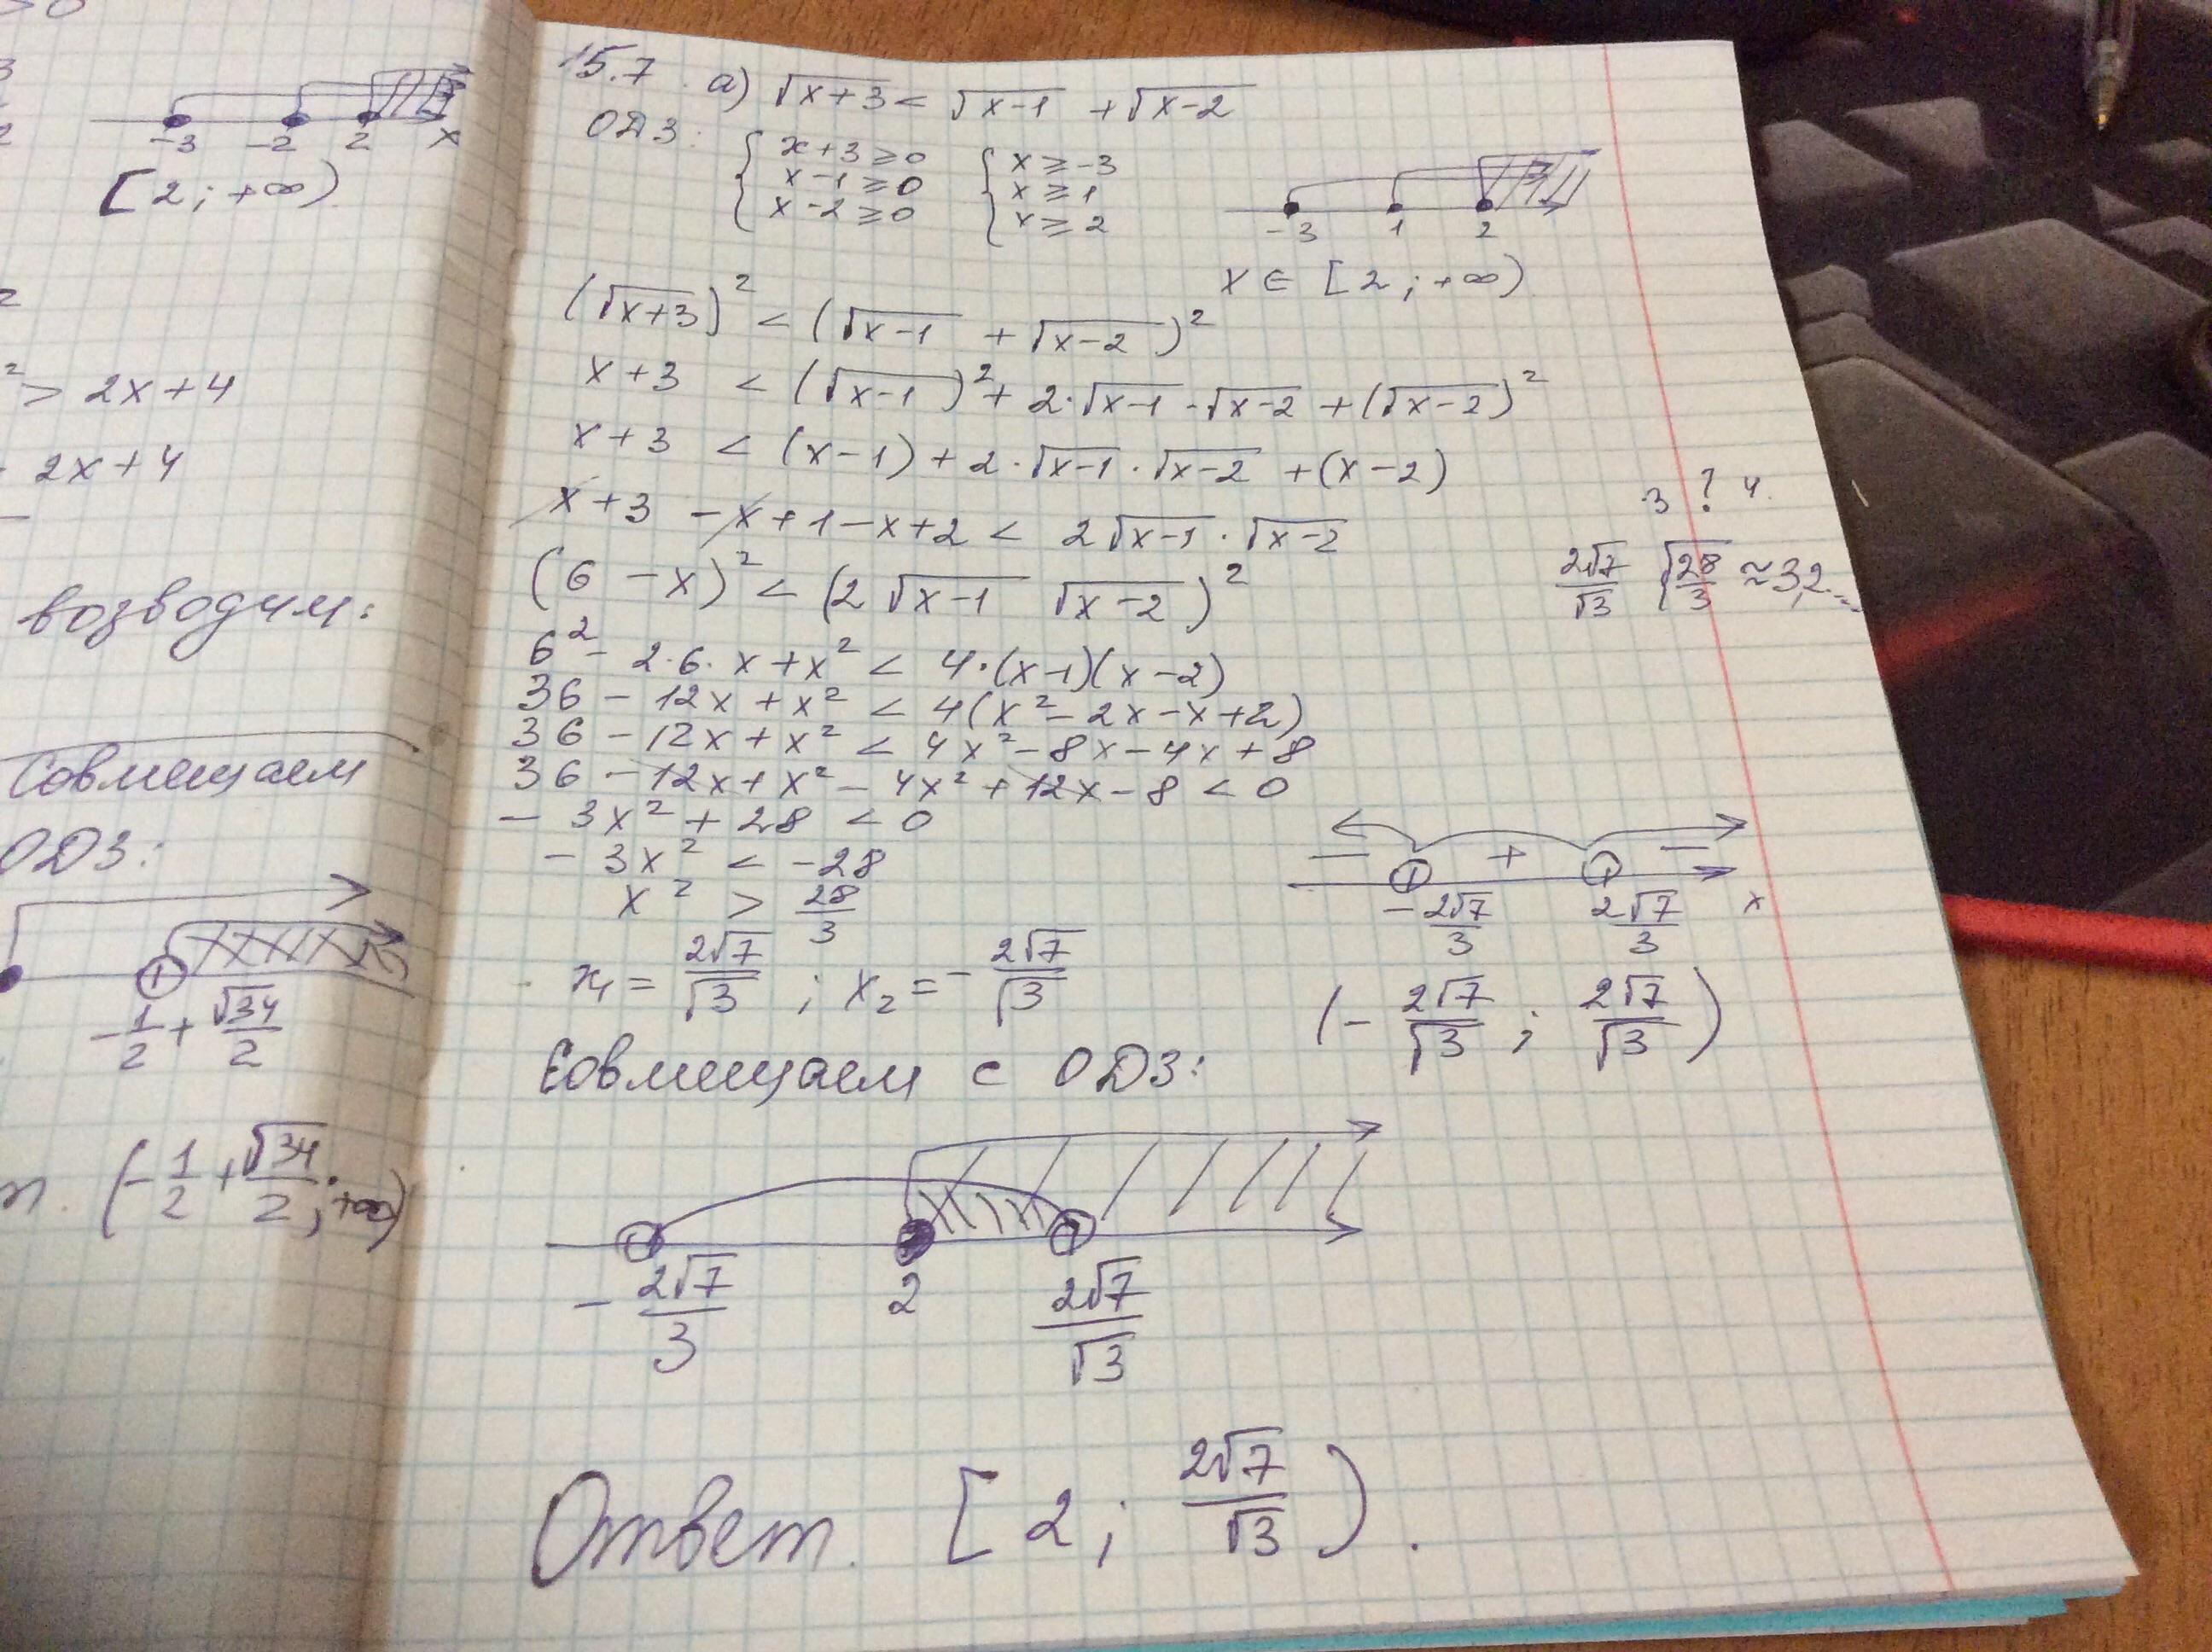 >0
3
2
-3 -2 2 x
[2; +∞)
2
² > 2x+4
2x+4
возводим:
Совмещаем
ОДЗ:
-1/2 + √34/2
(-1/2 + √34/2; +∞)
15.7 . а) √x+3 < √x-1 + √x-2
ОДЗ: { x+3 ≥ 0 { x ≥ -3
x-1 ≥ 0 x ≥ 1
x-2 ≥ 0 x ≥ 2
-3 1 2
x ∈ [2; +∞)
(√x+3)² < (√x-1 + √x-2)²
x+3 < (√x-1)² + 2·√x-1 · √x-2 + (√x-2)²
x+3 < (x-1) + 2·√x-1 · √x-2 + (x-2)
x+3 -x+1-x+2 < 2√x-1 · √x-2
3 ? 4.
2√7/√3 √28/3 ≈ 3,2...
(6 -x)² < (2 √x-1 √x-2)²
6² - 2·6·x+x² < 4·(x-1)(x-2)
36 - 12x + x² < 4(x²-2x-x+2)
36 - 12x + x² < 4x²-8x-4x+8
36 - 12x + x² - 4x² + 12x - 8 < 0
- 3x² + 28 < 0
- 3x² < -28
x² > 28/3
x₁ = 2√7/√3 ; x₂ = - 2√7/√3
— + —
-2√7/3 2√7/3 x
(- 2√7/√3 ; 2√7/√3)
Совмещаем с ОДЗ:
- 2√7/3 2 2√7/√3
Ответ. [2; 2√7/√3).